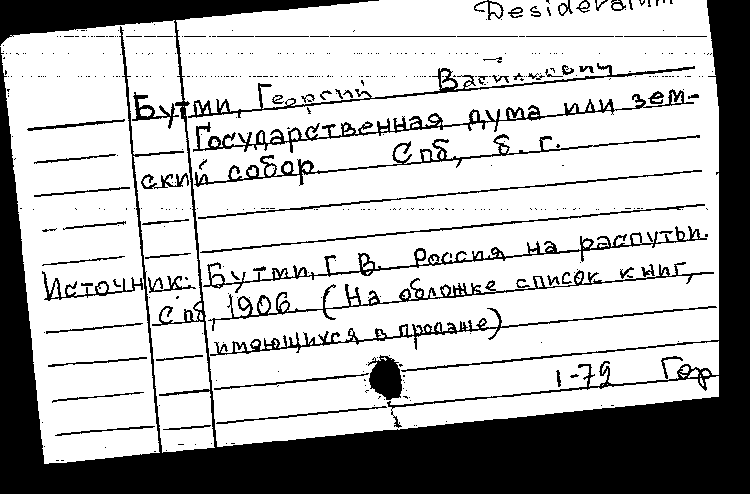 Desideratum
Бутми, Георгий Васильевич
Государственная дума или зем-
ский собор Спб, б. г.
Источник: Бутми, Г. В. Россия на распутьи.
Спб, 1906. (На обложке список книг,
имеющихся в продаже)
1-79 Гор